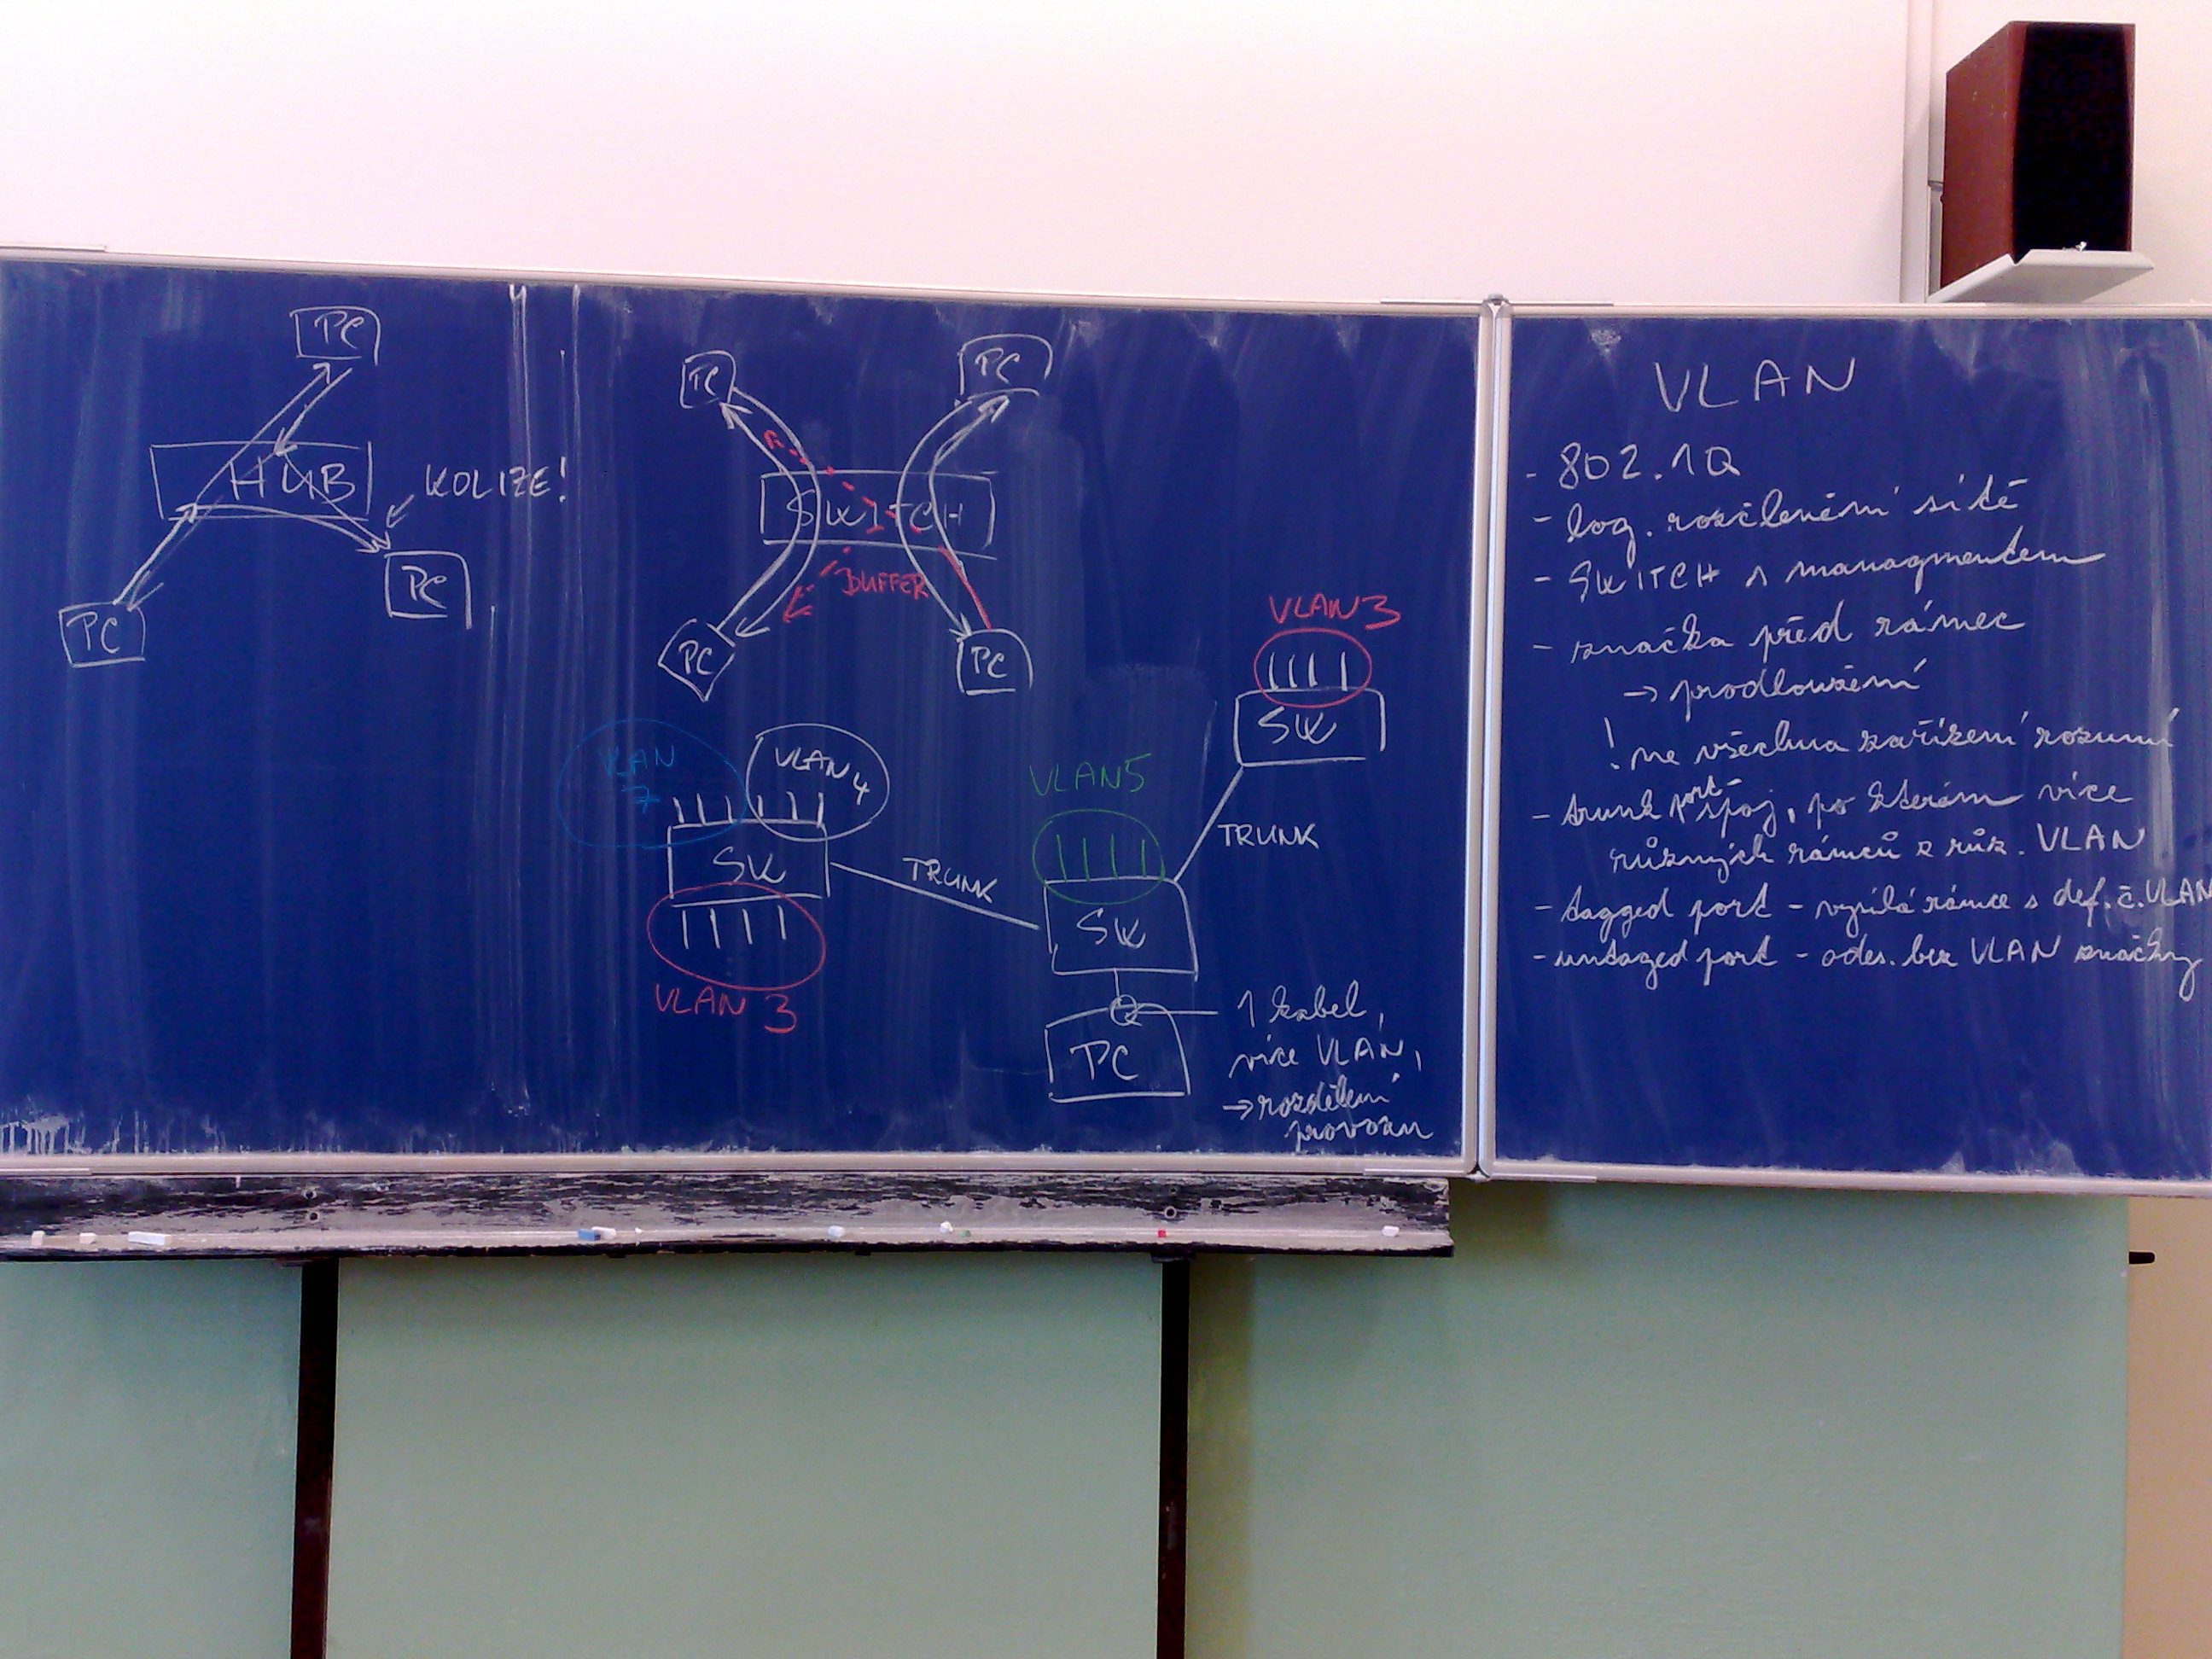 PC
HUB
KOLIZE!
PC
PC
PC
PC
SWITCH
BUFFER
PC
PC
VLAN 3
SW
VLAN 7
VLAN 4
SW
VLAN 3
TRUNK
VLAN 5
SW
TRUNK
PC
1 kabel,
více VLAN,
→ rozdělení
provozu
VLAN
- 802.1Q
- log. rozčlenění sítě
- SWITCH s managmentem
- značka před rámec
→ prodloužení
! ne všechna zařízení rozumí
- trunk port - spoj, po kterém více
různých rámců z růz. VLAN
- tagged port - vysílá rámce s def. č. VLAN
- untaged port - odes. bez VLAN značky